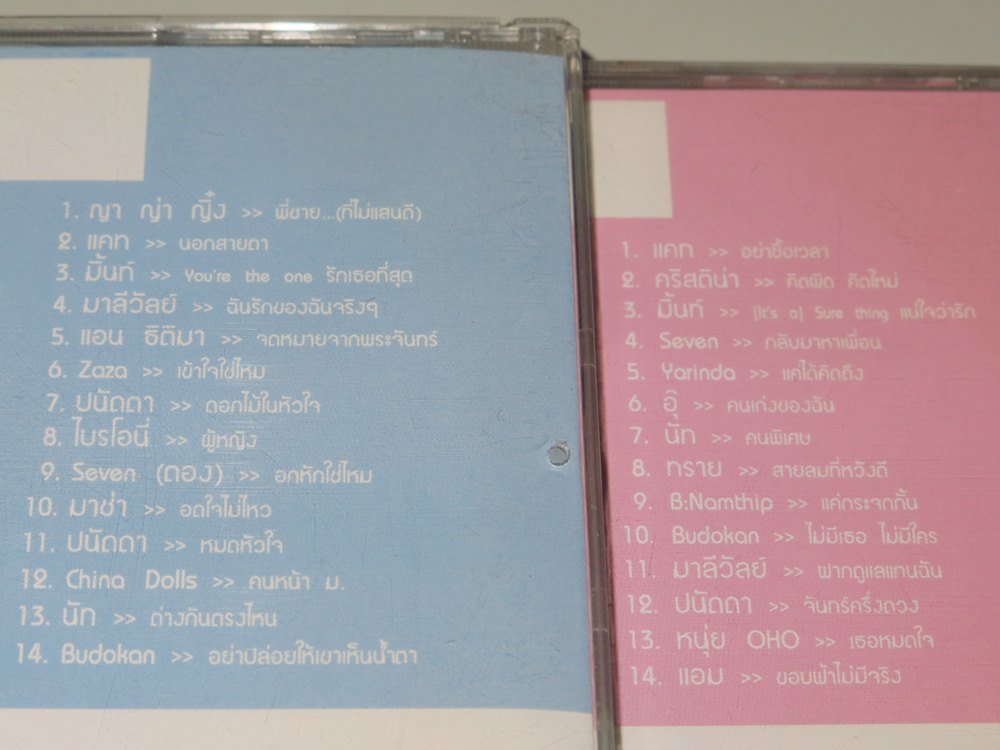 1. ญา ญ่า ญิ๋ง >> พี่ชาย...(ที่ไม่แสนดี)
2. แคท >> นอกสายตา
3. มิ้นท์ >> You're the one รักเธอที่สุด
4. มาลีวัลย์ >> ฉันรักของฉันจริงๆ
5. แอน ธิติมา >> จดหมายจากพระจันทร์
6. Zaza >> เข้าใจใช่ไหม
7. ปนัดดา >> ดอกไม้ในหัวใจ
8. ไบรโอนี่ >> ผู้หญิง
9. Seven (ตอง) >> อกหักใช่ไหม
10. มาช่า >> อดใจไม่ไหว
11. ปนัดดา >> หมดหัวใจ
12. China Dolls >> คนหน้า ม.
13. นัท >> ต่างกันตรงไหน
14. Budokan >> อย่าปล่อยให้เขาเห็นน้ำตา
1. แคท >> อย่าซื้อเวลา
2. คริสติน่า >> คิดผิด คิดใหม่
3. มิ้นท์ >> (It's a) Sure thing แน่ใจว่ารัก
4. Seven >> กลับมาหาเพื่อน
5. Yarinda >> แค่ได้คิดถึง
6. อุ๊ >> คนเก่งของฉัน
7. นัท >> คนพิเศษ
8. ทราย >> สายลมที่หวังดี
9. B:Namthip >> แค่กระจกกั้น
10. Budokan >> ไม่มีเธอ ไม่มีใคร
11. มาลีวัลย์ >> ฝากดูแลแทนฉัน
12. ปนัดดา >> จันทร์ครึ่งดวง
13. หนุ่ย OHO >> เธอหมดใจ
14. แอม >> ขอบฟ้าไม่มีจริง